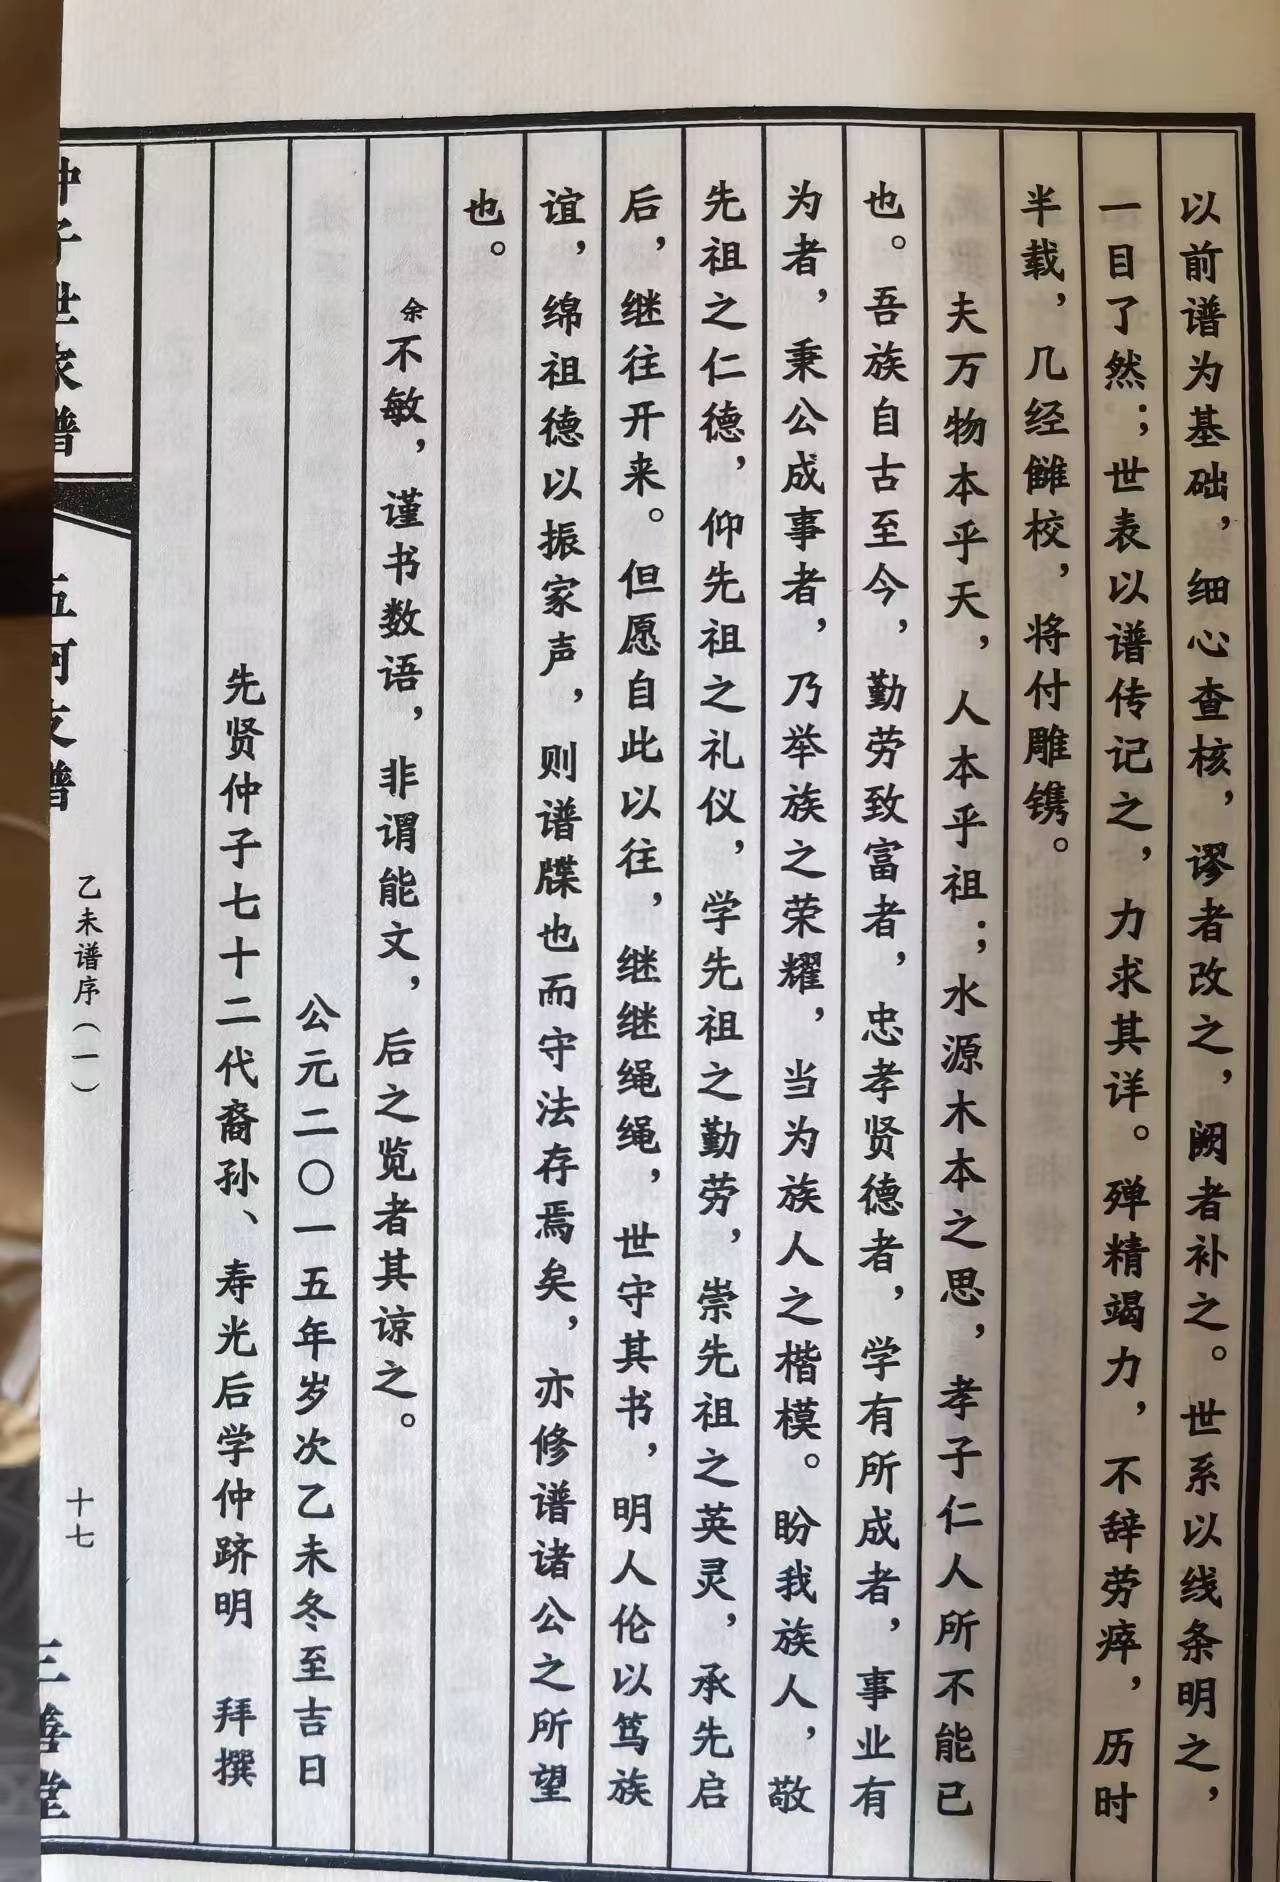 以前谱为基础，细心查核，谬者改之，阙者补之。世系以线条明之，
一目了然；世表以谱传记之，力求其详。殚精竭力，不辞劳瘁，历时
半载，几经雠校，将付雕镌。
夫万物本乎天，人本乎祖；水源木本之思，孝子仁人所不能已
也。吾族自古至今，勤劳致富者，忠孝贤德者，学有所成者，事业有
为者，秉公成事者，乃举族之荣耀，当为族人之楷模。盼我族人，敬
先祖之仁德，仰先祖之礼仪，学先祖之勤劳，崇先祖之英灵，承先启
后，继往开来。但愿自此以往，继继绳绳，世守其书，明人伦以笃族
谊，绵祖德以振家声，则谱牒也而守法存焉矣，亦修谱诸公之所望
也。
余不敏，谨书数语，非谓能文，后之览者其谅之。
公元二〇一五年岁次乙未冬至吉日
先贤仲子七十二代裔孙、寿光后学仲跻明 拜撰
仲子世家谱
五河支谱
乙未谱序（一）
十七
三善堂